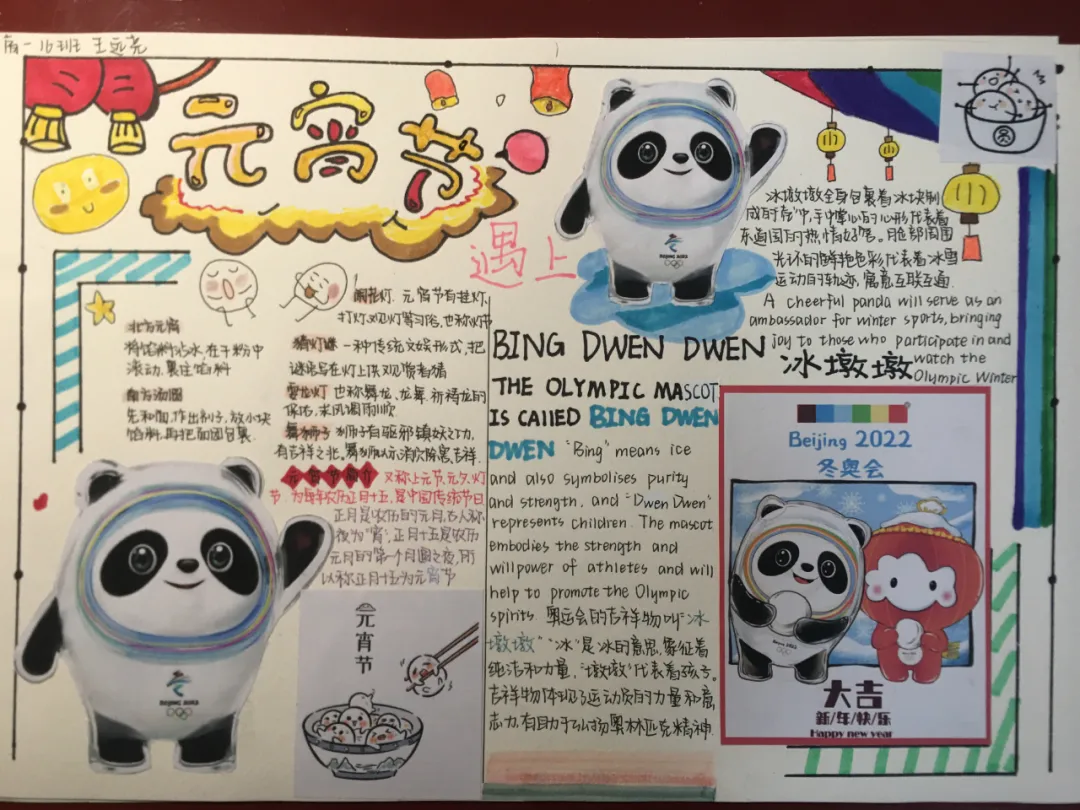 高一16班 王远尧
元宵节
遇上
闹花灯. 元宵节有挂灯.
打灯.观灯等习俗,也称灯节
猜灯谜 一种传统文娱形式,把
谜语写在灯上供观赏者猜
耍龙灯 也称舞龙,龙舞.祈祷龙的
保佑,求风调雨顺
舞狮子 狮子有驱邪镇妖之功,
有吉祥之兆.舞狮以示消灾除害,吉祥.
北方元宵
将馅料沾水,在干粉中
滚动,裹住馅料
南方汤圆
先和面,作出剂子,放小块
馅料,再把面团包裹.
元宵节简介 又称上元节,元夕,灯
节 为每年农历正月十五,是中国传统节日
正月是农历的元月,古人称
夜为"宵",正月十五是农历
元月的第一个月圆之夜,所
以称正月十五为元宵节
元宵节
BEIJING 2022
BEIJING 2022
冰墩墩全身包裹着冰块制
成的"衣"中,手中掌心的心形代表着
东道国的热情好客。脸部周围
光环的鲜艳色彩代表着冰雪
运动的轨迹,寓意互联互通.
A cheerful panda will serve as an
ambassador for winter sports, bringing
joy to those who participate in and
watch the
Olympic Winter
冰墩墩
BING DWEN DWEN
THE OLYMPIC MASCOT
IS CALLED BING DWEN
DWEN "Bing" means ice
and also symbolises purity
and strength, and "Dwen Dwen"
represents children. The mascot
embodies the strength and
willpower of athletes and will
help to promote the Olympic
spirits 奥运会的吉祥物叫"冰
墩墩" "冰"是冰的意思,象征着
纯洁和力量,"墩墩"代表着孩子。
吉祥物体现了运动员的力量和意
志力,有助于弘扬奥林匹克精神.
Beijing 2022
冬奥会
大吉
新/年/快/乐
Happy new year